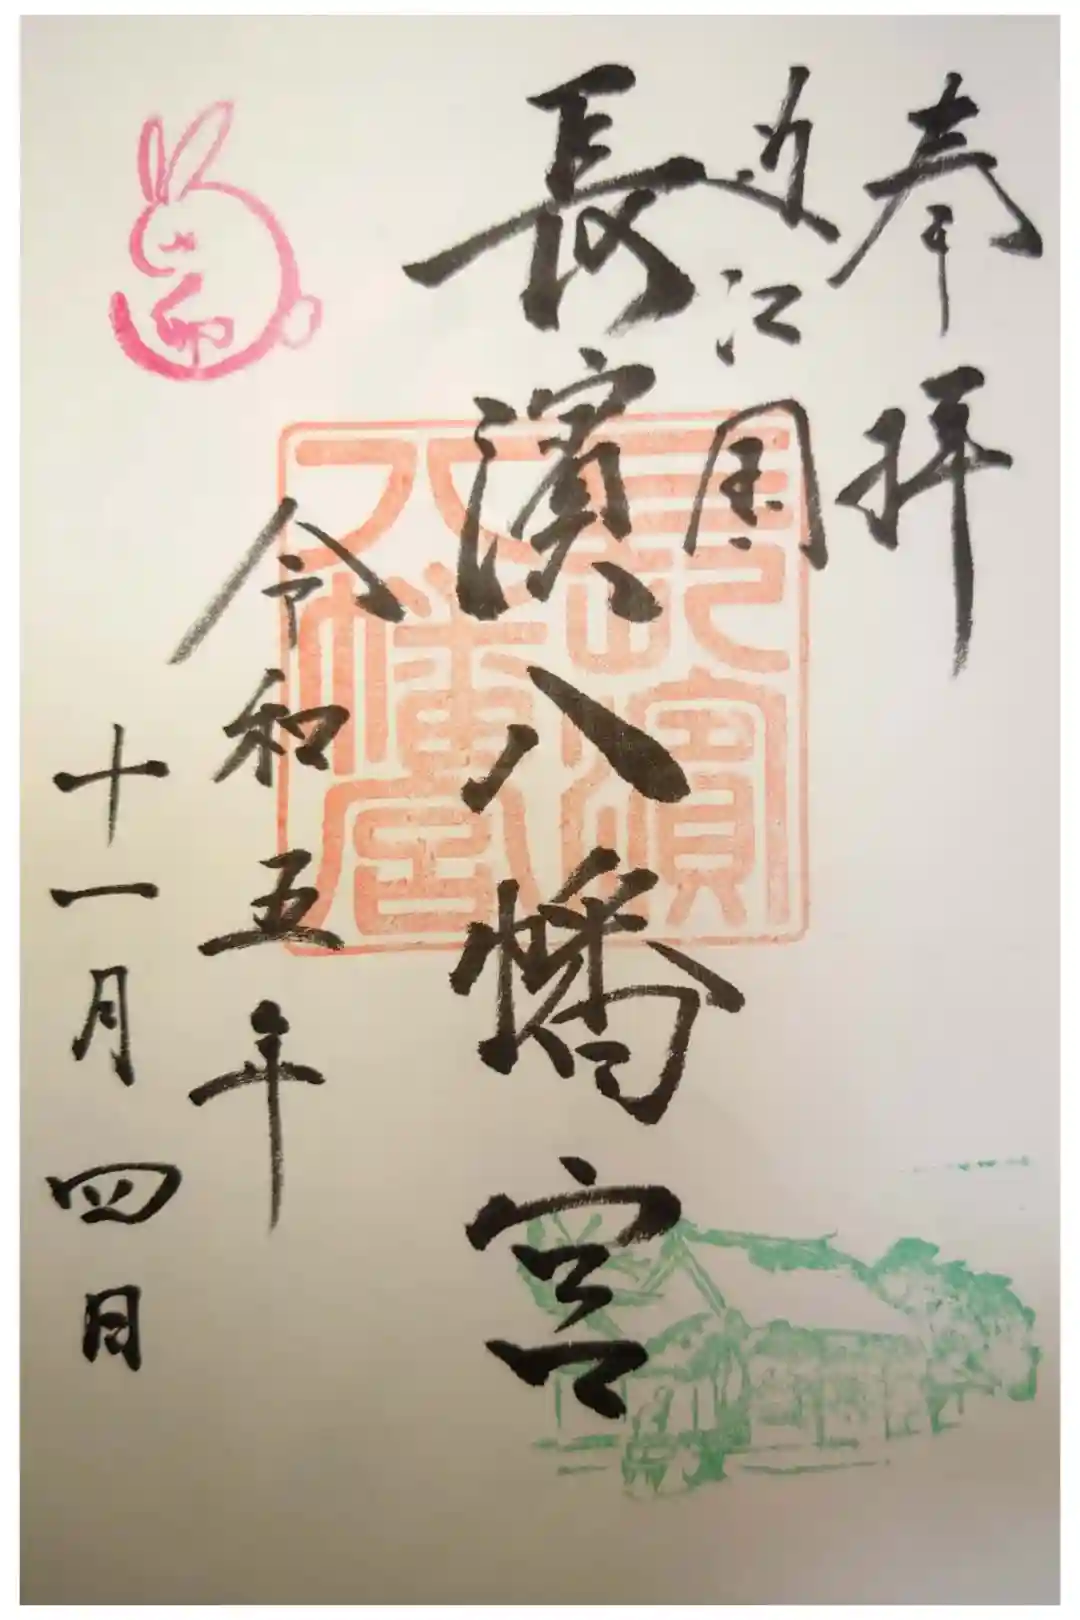 奉拝
近江国
長濱八幡宮
長濱八幡宮
令和五年
十一月四日
卯